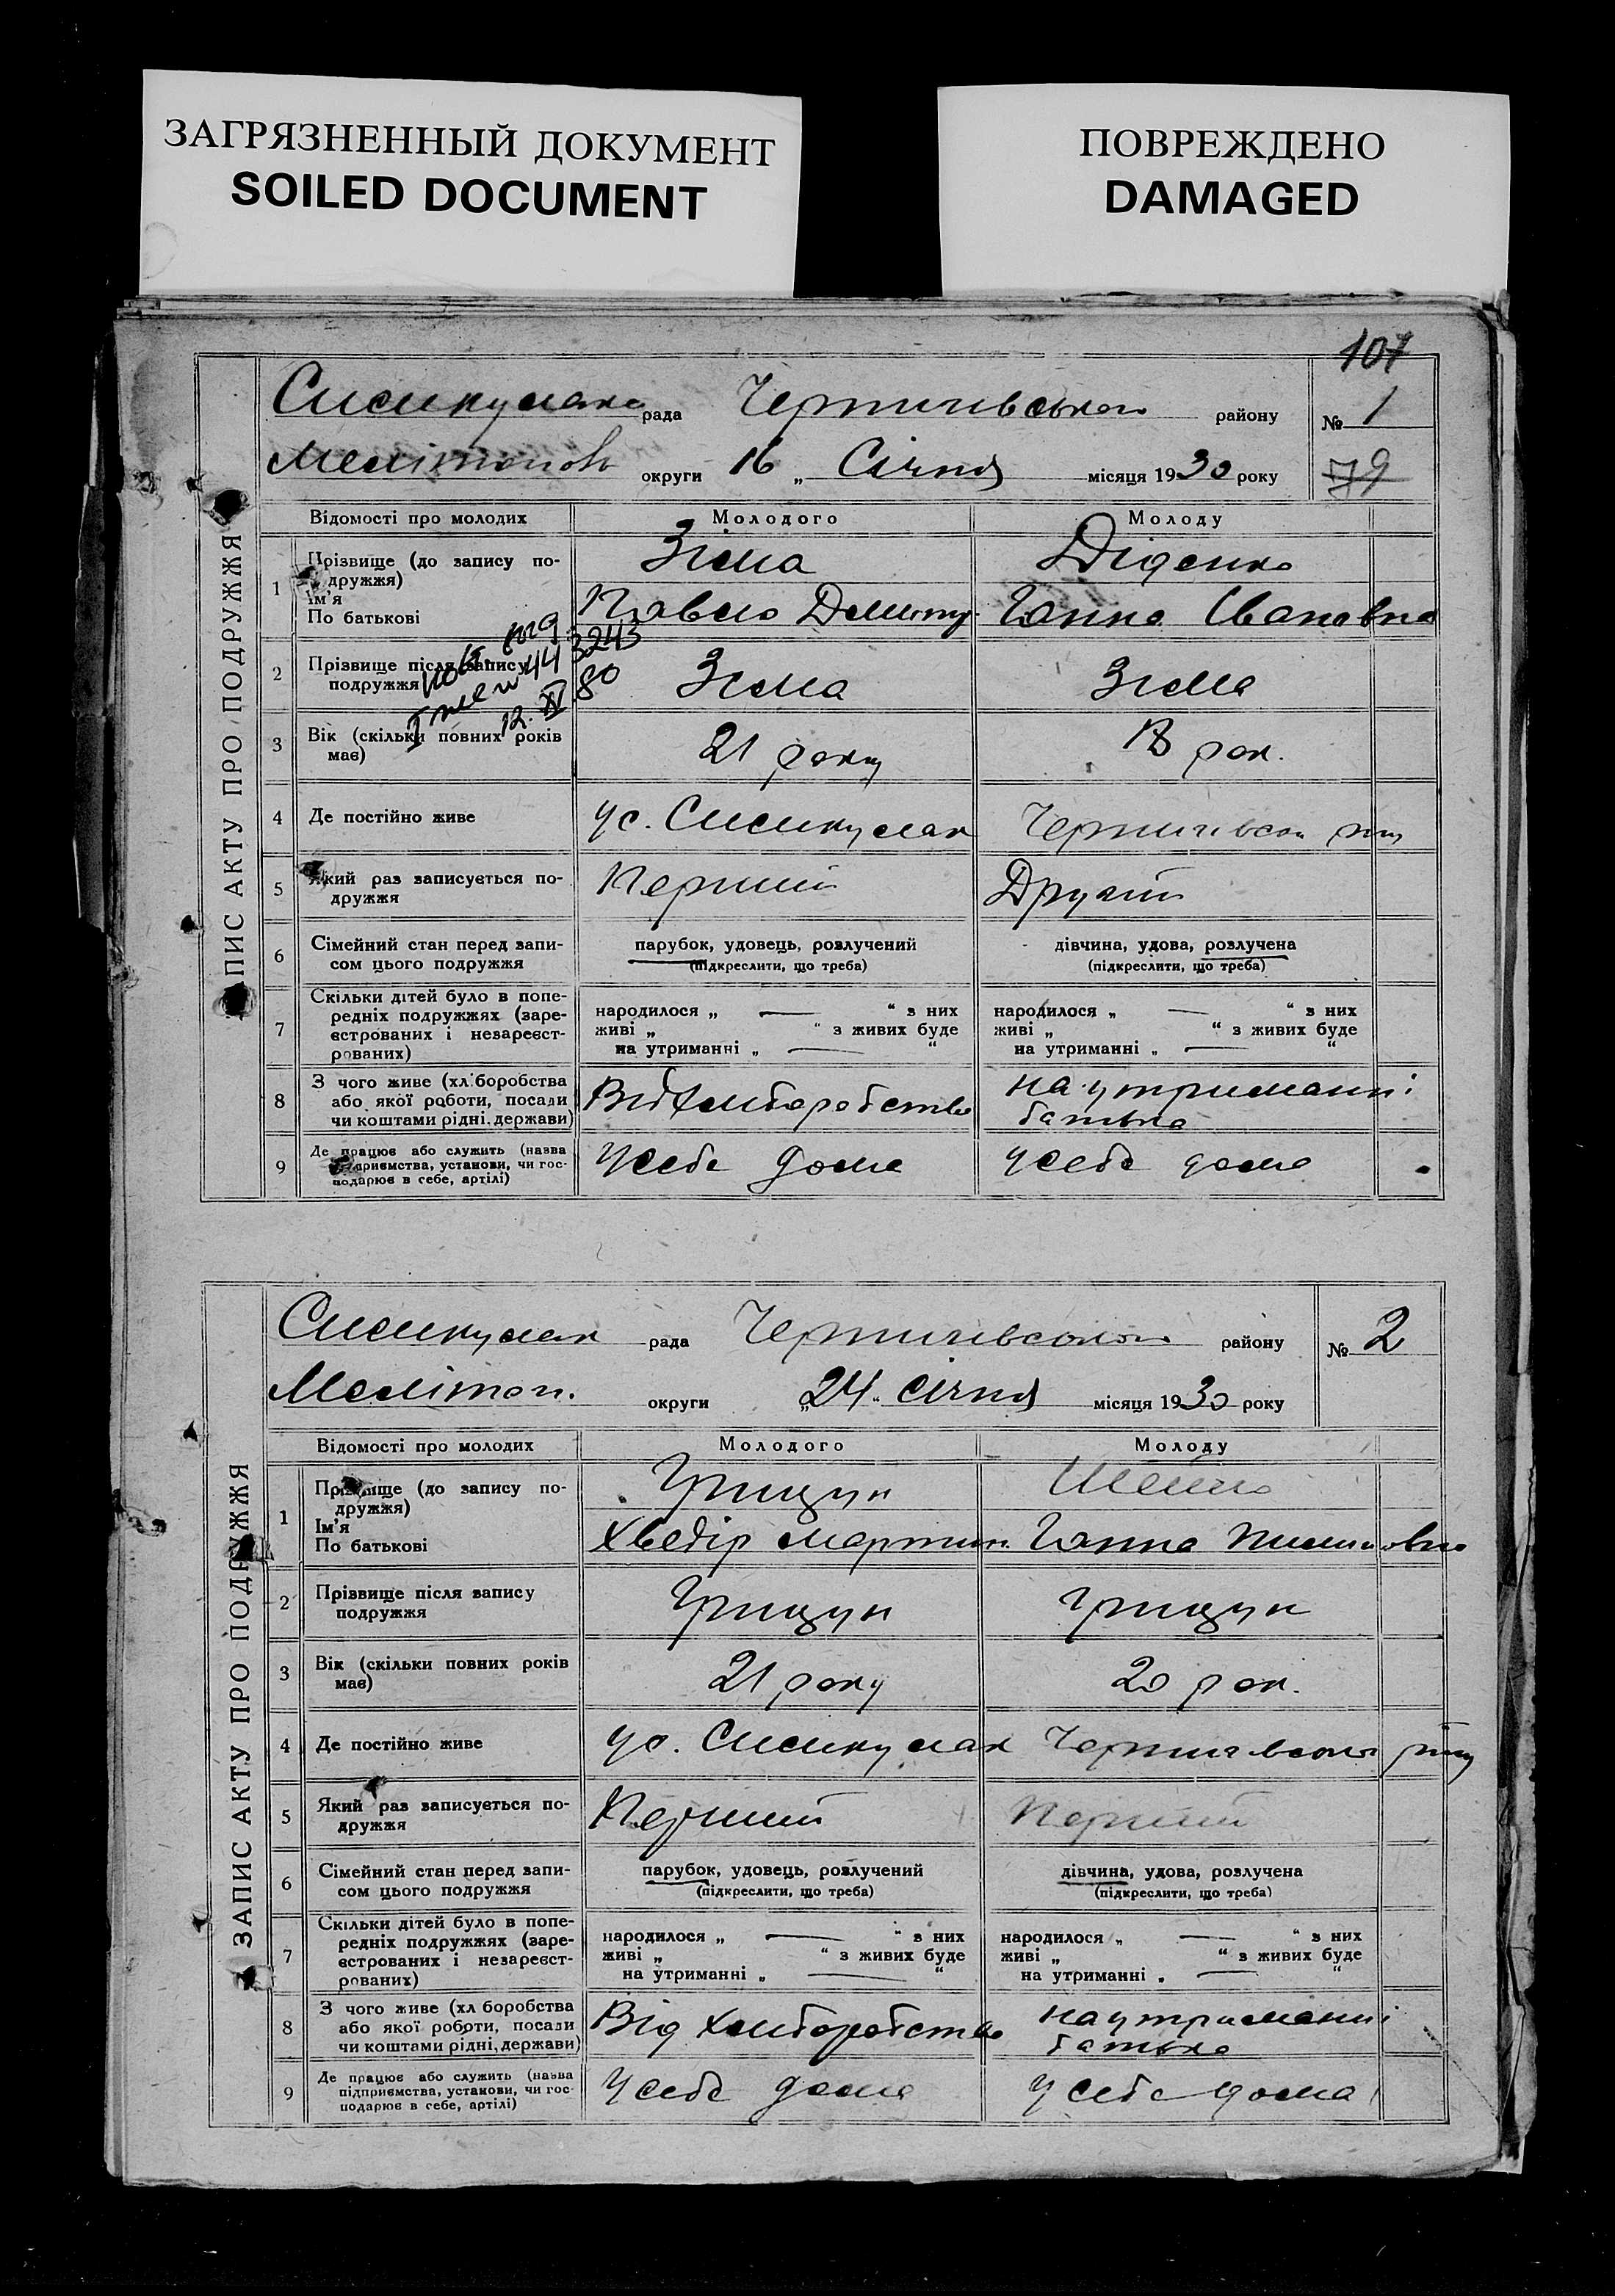 ЗАГРЯЗНЕННЫЙ ДОКУМЕНТ
SOILED DOCUMENT
ПОВРЕЖДЕНО
DAMAGED
107
АПИС АКТУ ПРО ПОДРУЖЖЯ
рада Чернигівського району № 1
округи 16 „ Січня місяця 1930 року 79
Відомості про молодих Молодого Молоду
1 Прізвище (до запису по- Зіма Діденко
дружжя)
Ім'я
По батькові Павло Дмитр. Ганна Івановна
2 Прізвище після запису
подружжя Зіма Зіма
44 3243
12. XI 80
3 Вік (скільки повних років
має) 21 року 18 рок.
4 Де постійно живе ус. Чернигівськ р-ну
5 Який раз записується по-
дружжя Перший Другий
6 Сімейний стан перед запи- парубок, удовець, розлучений дівчина, удова, розлучена
сом цього подружжя (підкреслити, що треба) (підкреслити, що треба)
7 Скільки дітей було в попе-
редніх подружжях (заре- народилося „ — “ з них народилося „ — “ з них
єстрованих і незареєст- живі „ “ з живих буде живі „ “ з живих буде
рованих) на утриманні „ — “ на утриманні „ — “
8 З чого живе (хліборобства на утриманні
або якої роботи, посади Від хліборобства батька
чи коштами рідні, держави)
9 Де працює або служить (назва
підприємства, установи, чи гос- У себе дома у себе дома
подарює в себе, артілі)
ЗАПИС АКТУ ПРО ПОДРУЖЖЯ
рада Чернигівського району № 2
Мелітоп. округи „24“ січня місяця 1930 року
Відомості про молодих Молодого Молоду
1 Прізвище (до запису по- Грицун
дружжя)
Ім'я
По батькові Хведір Мартин. Ганна Пилиповна
2 Прізвище після запису
подружжя Грицун Грицун
3 Вік (скільки повних років
має) 21 року 20 рок.
4 Де постійно живе ус. Чернигівськ р-ну
5 Який раз записується по-
дружжя Перший Перший
6 Сімейний стан перед запи- парубок, удовець, розлучений дівчина, удова, розлучена
сом цього подружжя (підкреслити, що треба) (підкреслити, що треба)
7 Скільки дітей було в попе-
редніх подружжях (заре- народилося „ — “ з них народилося „ — “ з них
єстрованих і незареєст- живі „ “ з живих буде живі „ “ з живих буде
рованих) на утриманні „ — “ на утриманні „ — “
8 З чого живе (хл боробства на утриманні
або якої роботи, посади Від хліборобства батька
чи коштами рідні, держави)
9 Де працює або служить (назва
підприємства, установи, чи гос- У себе дома У себе дома
подарює в себе, артілі)